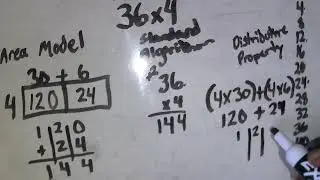 36x4
Area Model
30 + 6
4 120 24
1 2 0
+ 2 4
1 4 4
standard
algorithm
36
x4
144
Distributive
Property
(4x30)+(4x6)
120 + 24
1 2
4
8
12
16
20
24
28
32
36